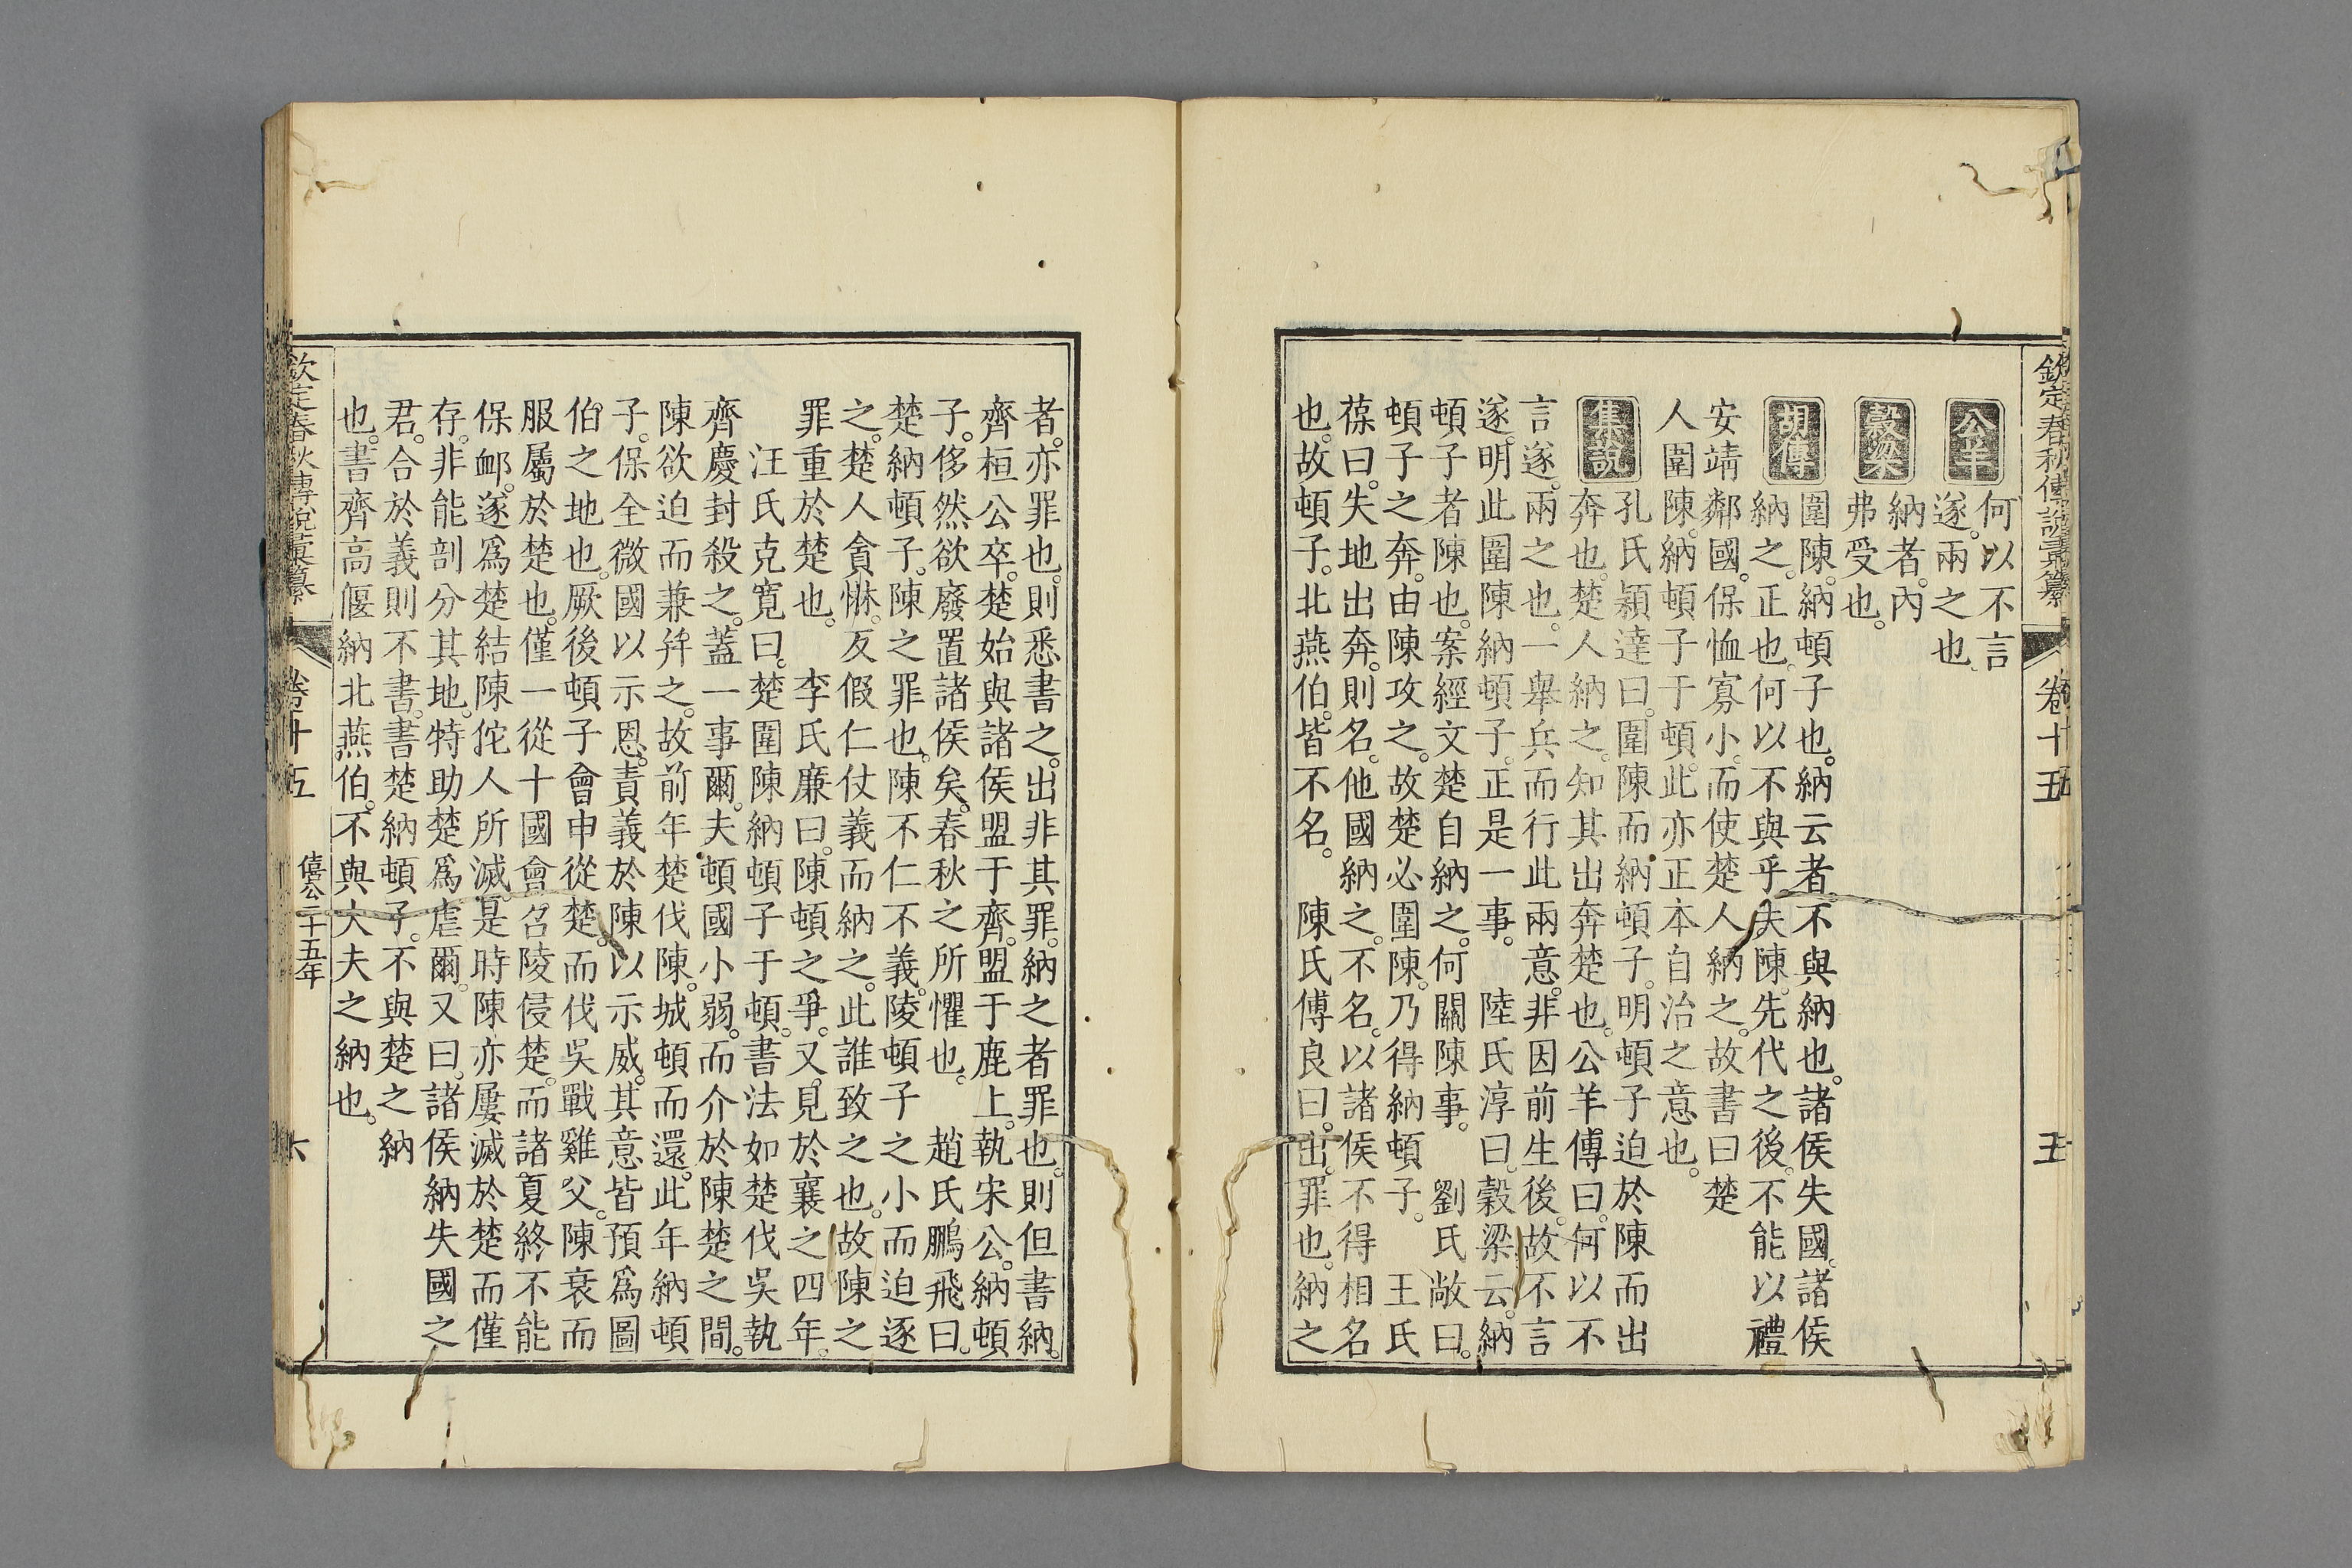 欽定春秋傳說彙纂 卷十五 五
公羊 何以不言
遂。兩之也。
穀梁 納者。內
弗受也。
胡傳 圍陳。納頓子也。納云者。不與納也。諸侯失國。諸侯
納之。正也。何以不與乎。夫陳。先代之後。不能以禮
安靖鄰國。保恤寡小。而使楚人納之。故書曰楚
人圍陳。納頓子于頓。此亦正本自治之意也。
集說 孔氏穎達曰。圍陳而納頓子。明頓子迫於陳而出
奔也。楚人納之。知其出奔楚也。公羊傳曰。何以不
言遂。兩之也。一舉兵而行此兩意。非因前生後。故不言
遂。明此圍陳納頓子。正是一事。 陸氏淳曰。穀梁云。納
頓子者陳也。案經文楚自納之。何關陳事。 劉氏敞曰。
頓子之奔。由陳攻之。故楚必圍陳。乃得納頓子。 王氏
葆曰。失地出奔。則名。他國納之。不名。以諸侯不得相名
也。故頓子。北燕伯。皆不名。 陳氏傅良曰。出。罪也。納之
者。亦罪也。則悉書之。出非其罪。納之者罪也。則但書納。
齊桓公卒。楚始與諸侯盟于齊。盟于鹿上。執宋公。納頓
子。侈然欲廢置諸侯矣。春秋之所懼也。 趙氏鵬飛曰。
楚納頓子。陳之罪也。陳不仁不義。陵頓子之小而迫逐
之。楚人貪惏。反假仁仗義而納之。此誰致之也。故陳之
罪重於楚也。 李氏廉曰。陳頓之爭。又見於襄之四年。
汪氏克寬曰。楚圍陳納頓子于頓。書法如楚伐吳執
齊慶封殺之。蓋一事爾。夫頓國小弱。而介於陳楚之間。
陳欲迫而兼并之。故前年楚伐陳。城頓而還。此年納頓
子。保全微國以示恩。責義於陳以示威。其意皆預爲圖
伯之地也。厥後頓子會申從楚。而伐吳戰雞父。陳衰而
服屬於楚也。僅一從十國會召陵侵楚。而諸夏終不能
保卹。遂爲楚結陳佗人所滅。是時陳亦屢滅於楚而僅
存。非能剖分其地。特助楚爲虐爾。又曰。諸侯納失國之
君。合於義則不書。書楚納頓子。不與楚之納
也。書齊高偃納北燕伯。不與大夫之納也。
欽定春秋傳說彙纂 卷十五 僖公二十五年 六